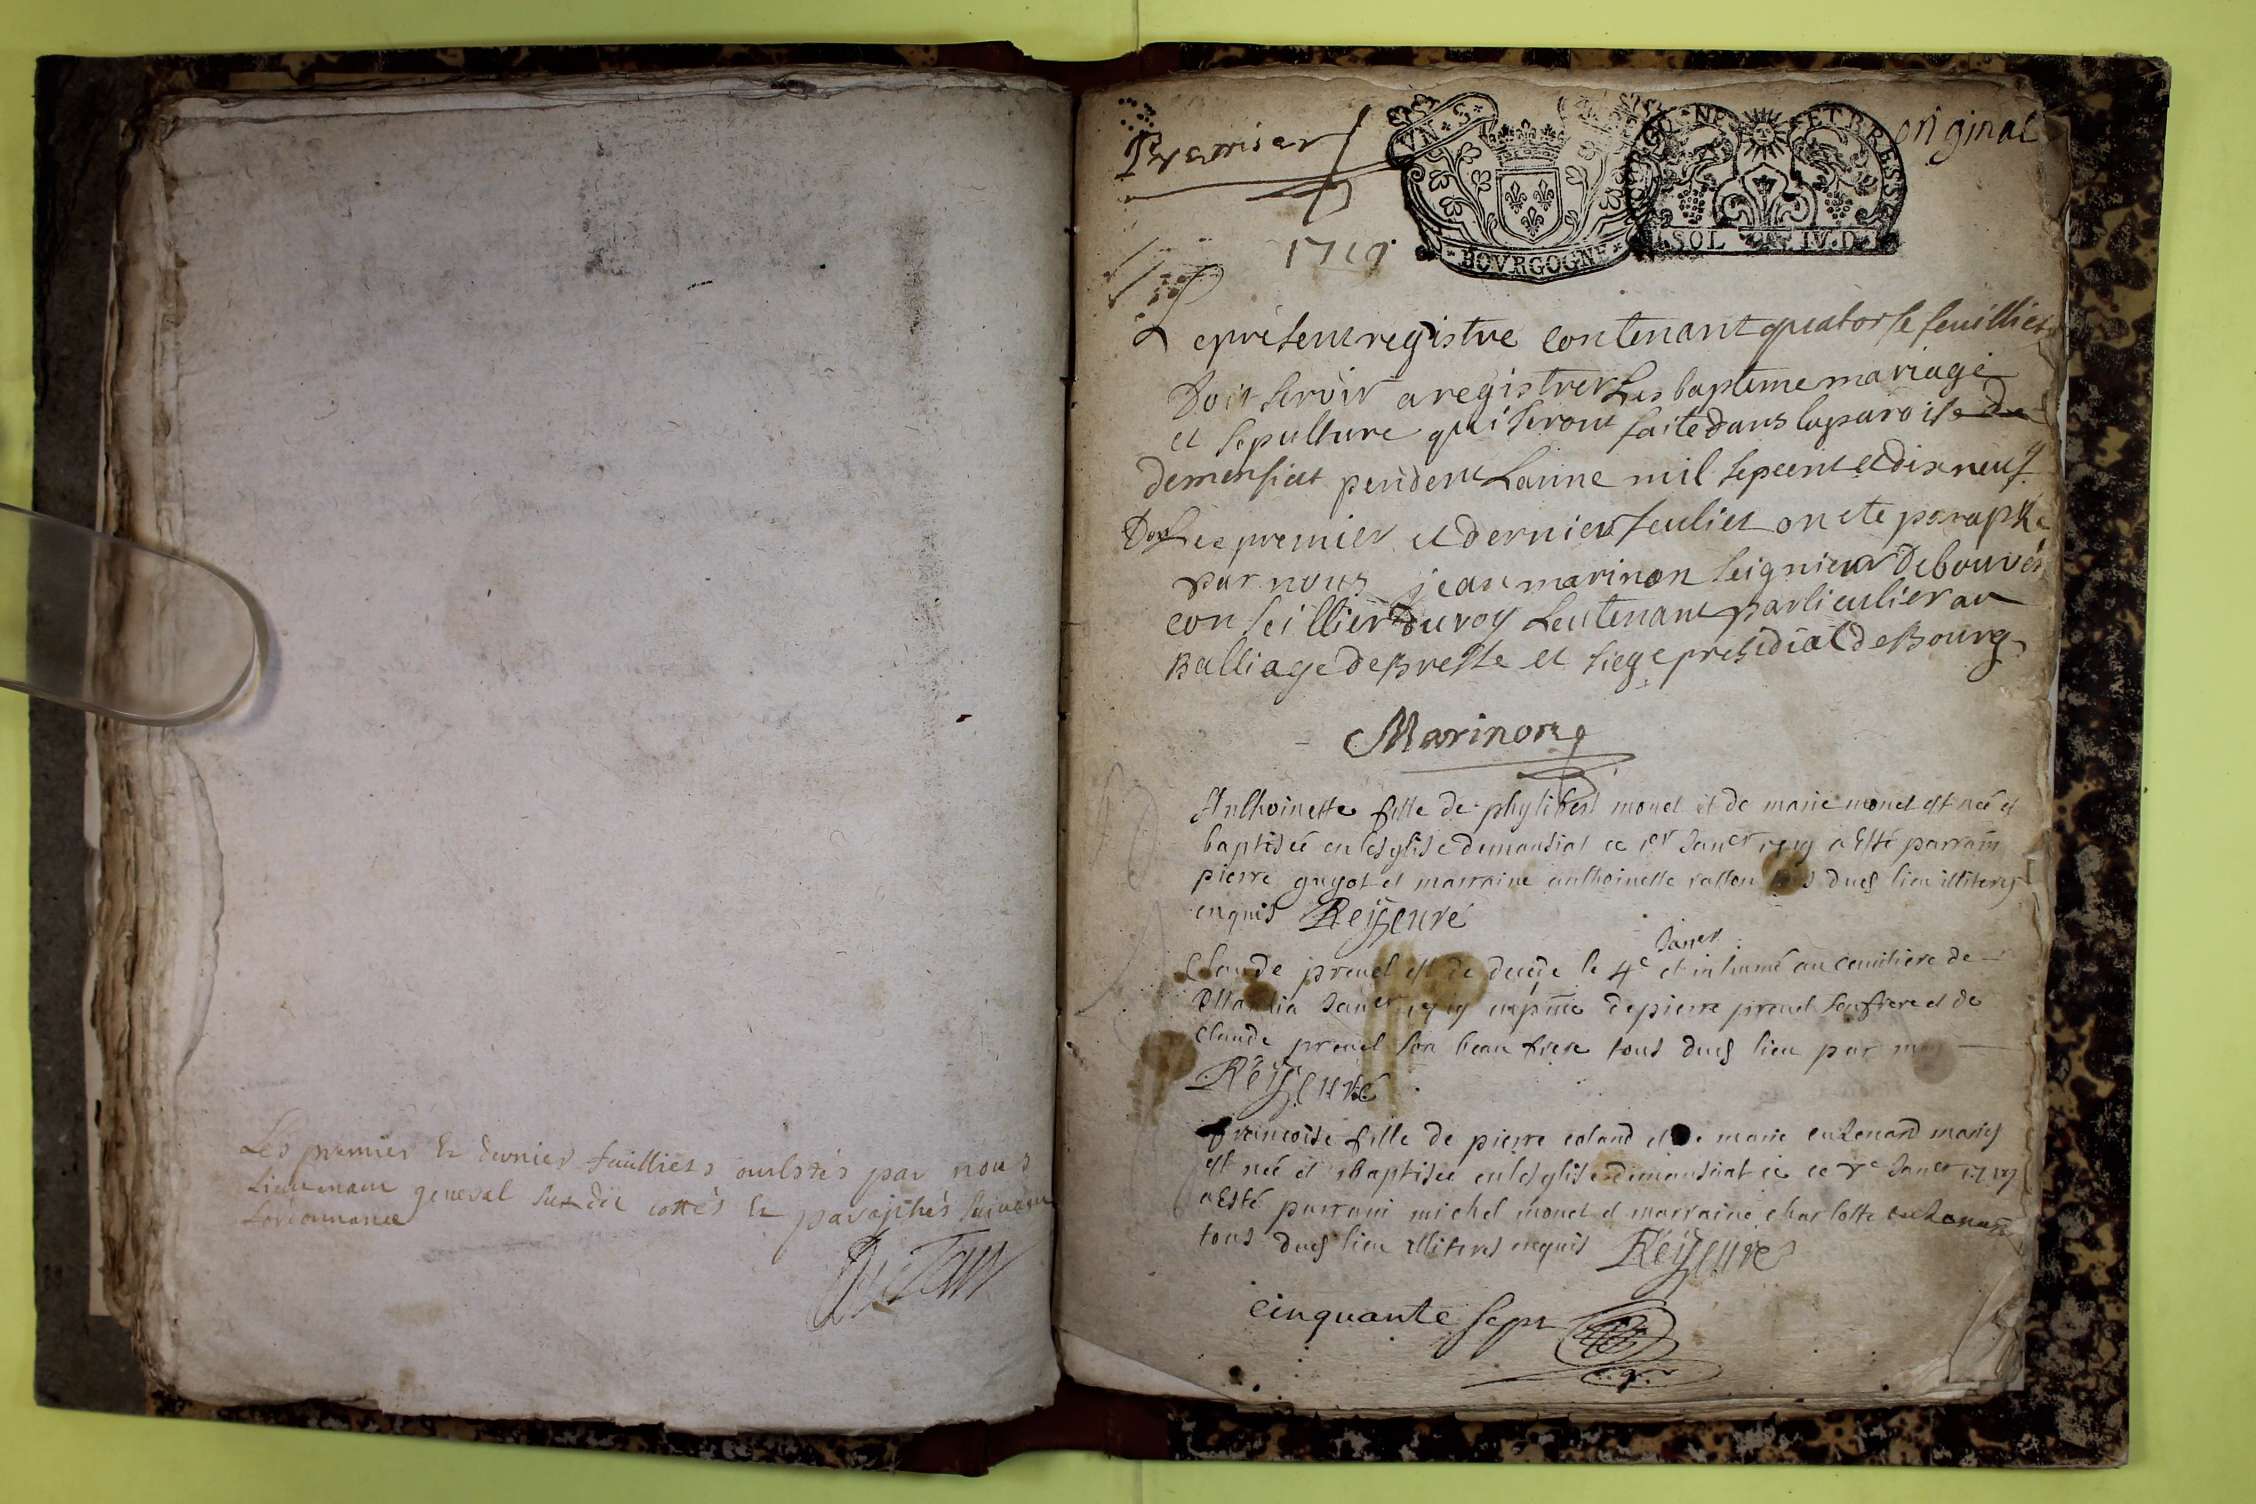 Les premier & dernier feuilliets ont estés par nous
Lieutenant general susdit cottés & paraphés suivant
Lordonnance
Premier
original
VN · S ·
BOVRGOGNE
ET BRESSE
SOL IV · D
1719
Le present regjstre contenant quatorse feuilliet
Doit servir a registrer Les bapteme mariage
et sepulture qui seront faite dans la paroise de
demensiat pendent Lanne mil sepcent et dix neuf
Dont Les premier et dernier feuliet on ete paraphe
par nous jean marinon seignieur De bouvén
conseillier du roy Leutenant particulier au
Balliage de Bresse et siege presidial de Bourg
Marinon
Anthoinette fille de phylibert monet et de marie monet est neé et
baptiseé en lesglise demansiat ce 1er Janer 1719 a Esté parrain
pierre guyot et marraine anthoinette ds lieu illiteres
enquis Rey curé
Janer
Claude prevel est de decede le 4e et inhumé au cemitiere de
Janer 1719 en pnce de pierre prevel son frere et de
Claude prevel son beau frere tous duds lieu par moy
Rey curé
francoise fille de pierre coland et de marie mariés
est neé et Baptiseé en lesglise demansiat ce Janer 1719
a Esté parrain michel monet et marraine charlotte
tous duds lieu illiteres enquis Rey curé
cinquante sept